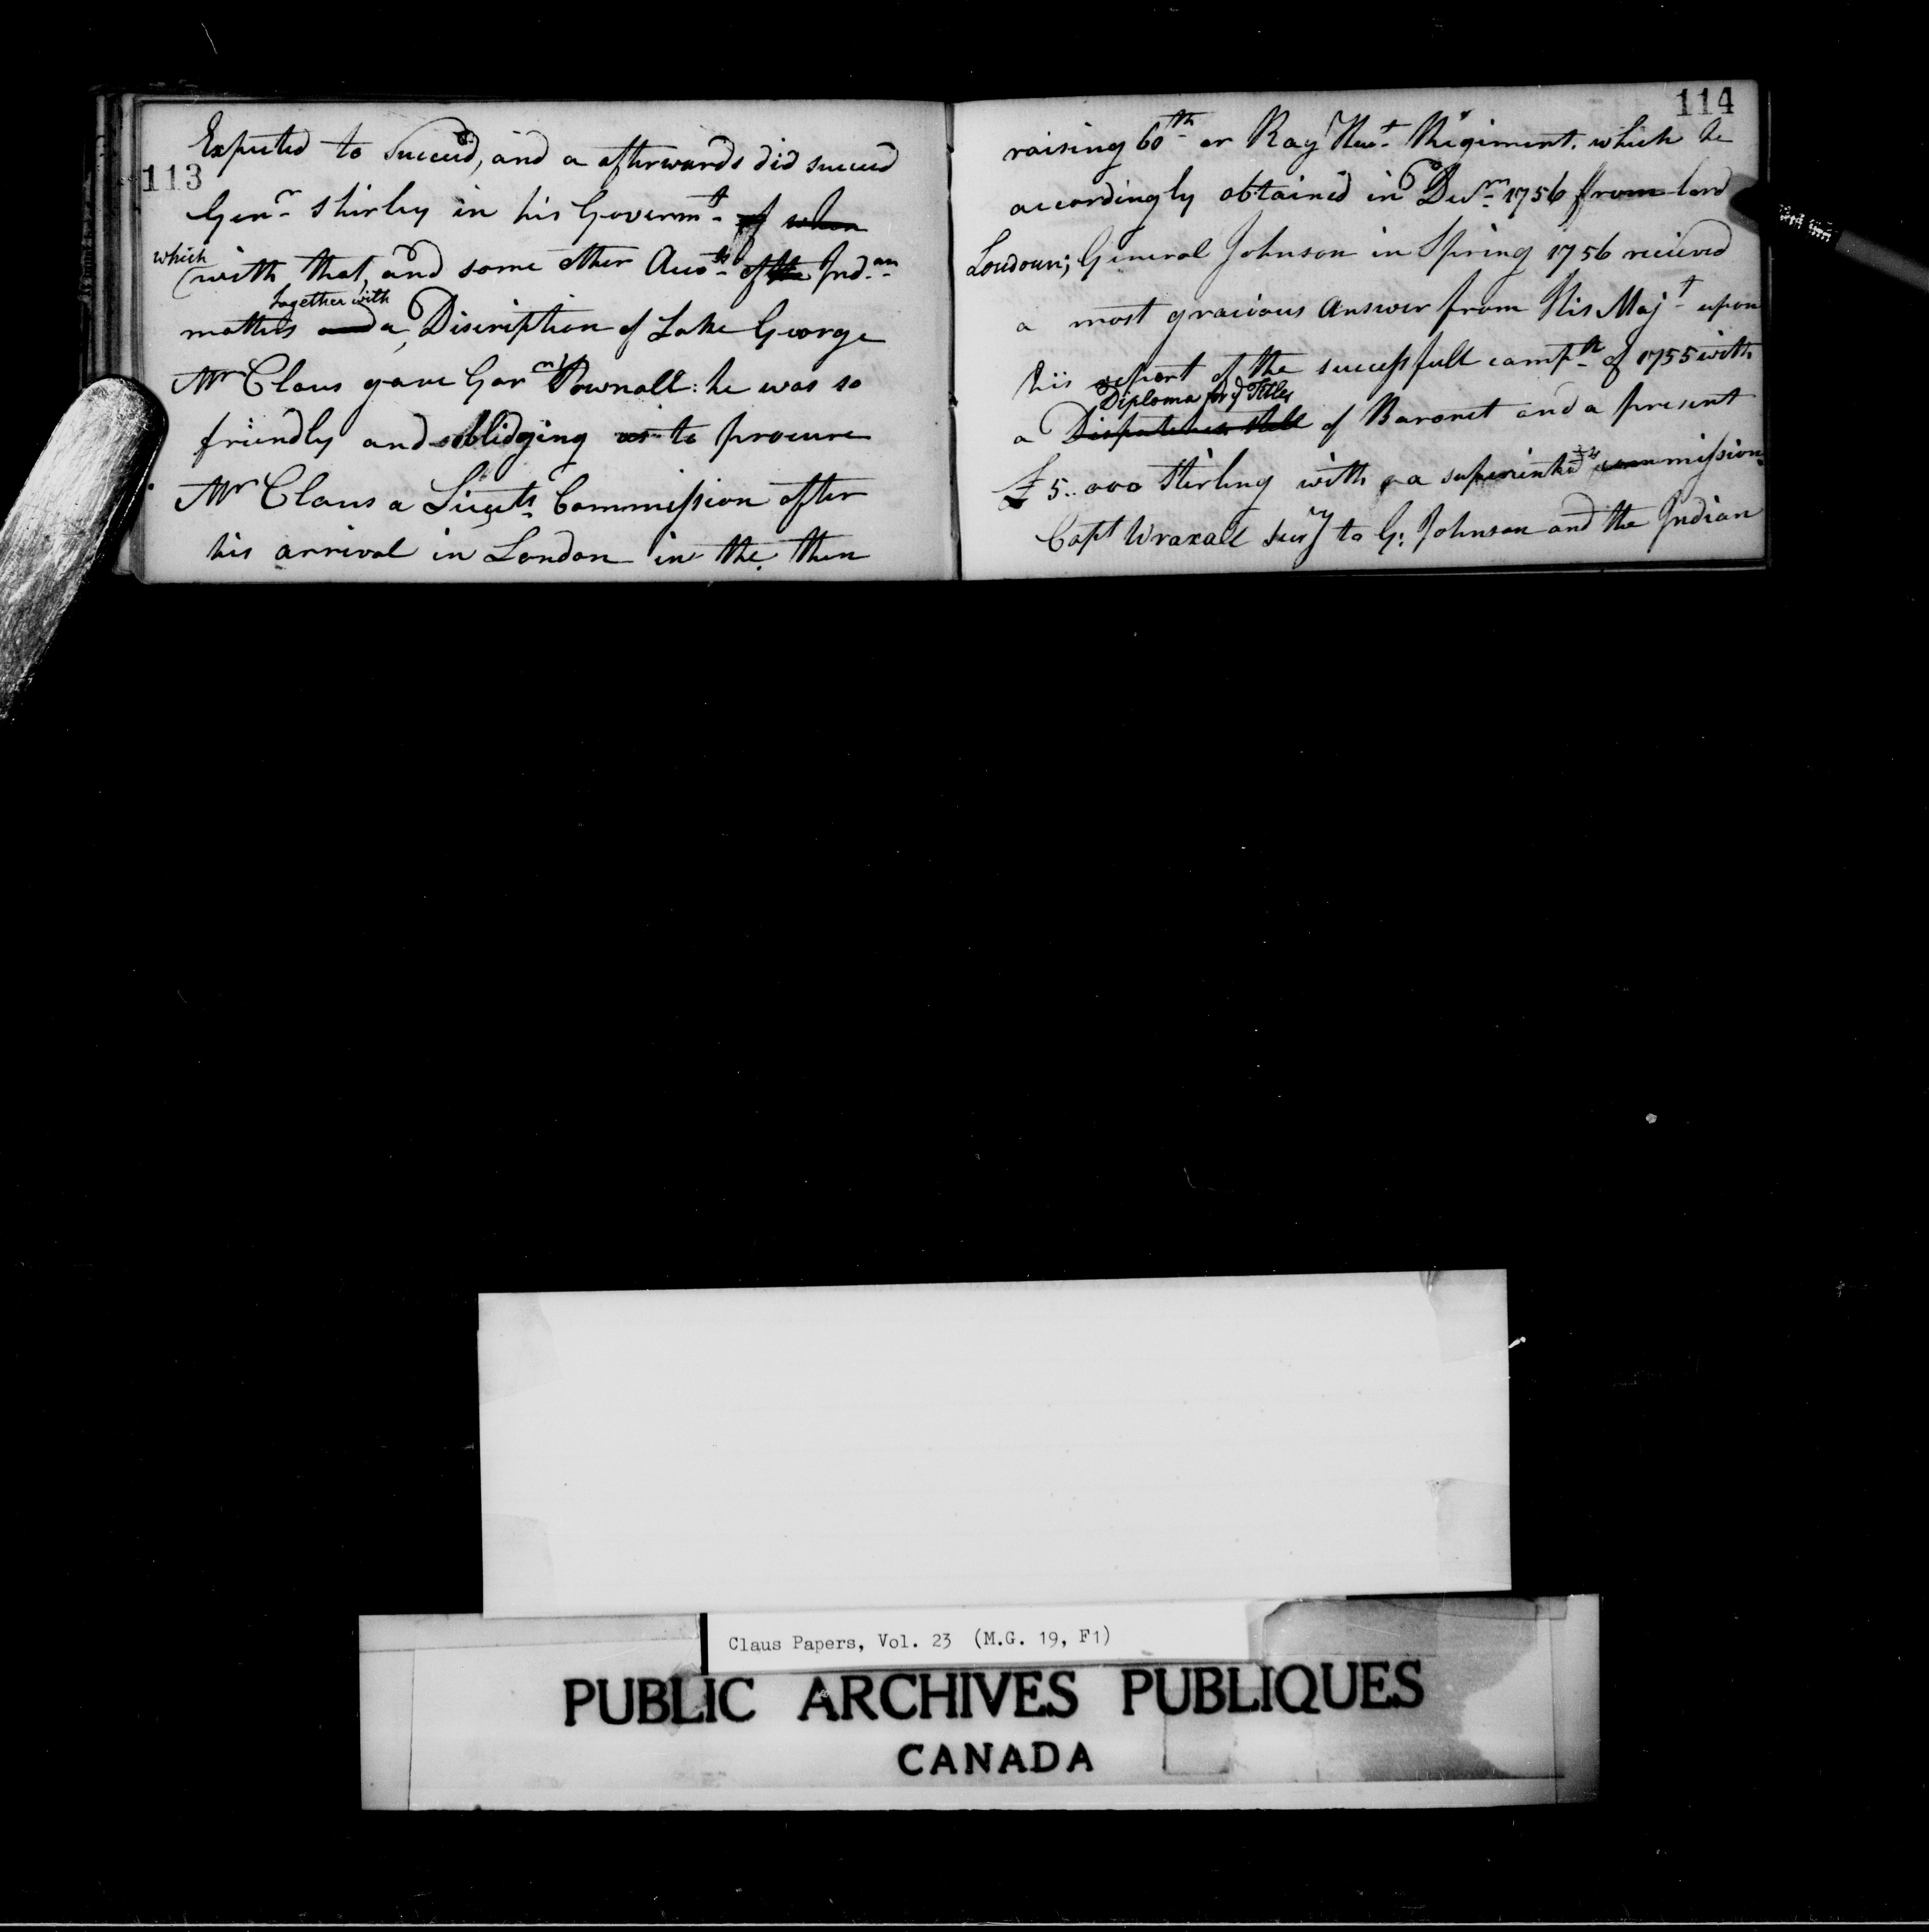 113
Expected to Succeed, and a afterwards did succeed
Genr Shirley in his Governmt of whom
which
with that, and some other Accots of the Indan
together with
matters and a Discription of Lake George
Mr Claus gave Govr Pownall: he was so
friendly and oblidging as to procure
Mr Claus a Lieuts Commission after
his arrival in London in the then
114
raising 60th or Regiment. which he
accordingly obtained in Decr 1756 from lord
Loudoun; General Johnson in Spring 1756 recieved
a most gracious Answer from His Majt upon
his report of the successfull of 1755 with
Diploma for ye Title
a of Baronet and a present
£ 5..000 Sterling with a commission.
Capt Wraxall Secry to G: Johnson and the Indian
Claus Papers, Vol. 23 (M.G. 19, F1)
PUBLIC ARCHIVES PUBLIQUES
CANADA